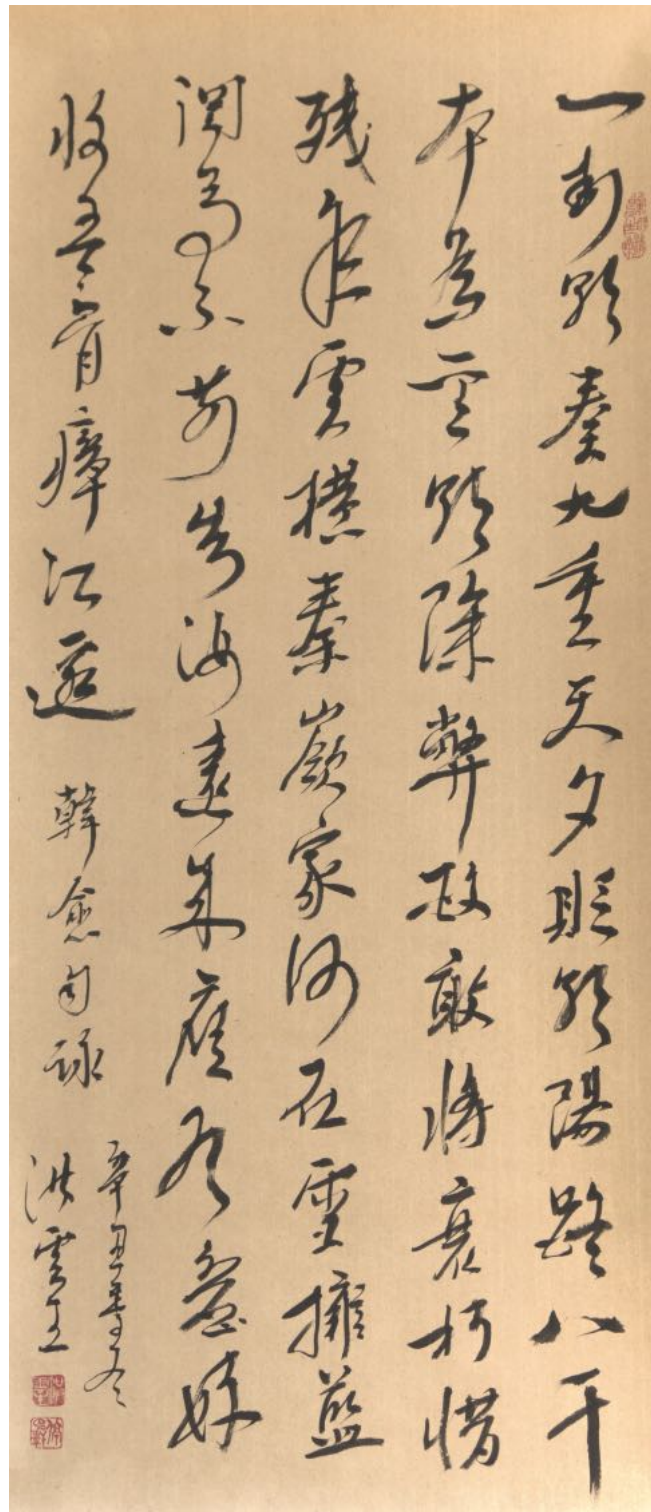 一封朝奏九重天夕貶朝陽路八千
本為聖朝除弊政敢將衰朽惜
残年雲橫秦嶺家何在雪擁藍
関馬不前知汝遠來應有意好
收吾骨瘴江邊 韓愈句詠
辛丑季冬
洪雲